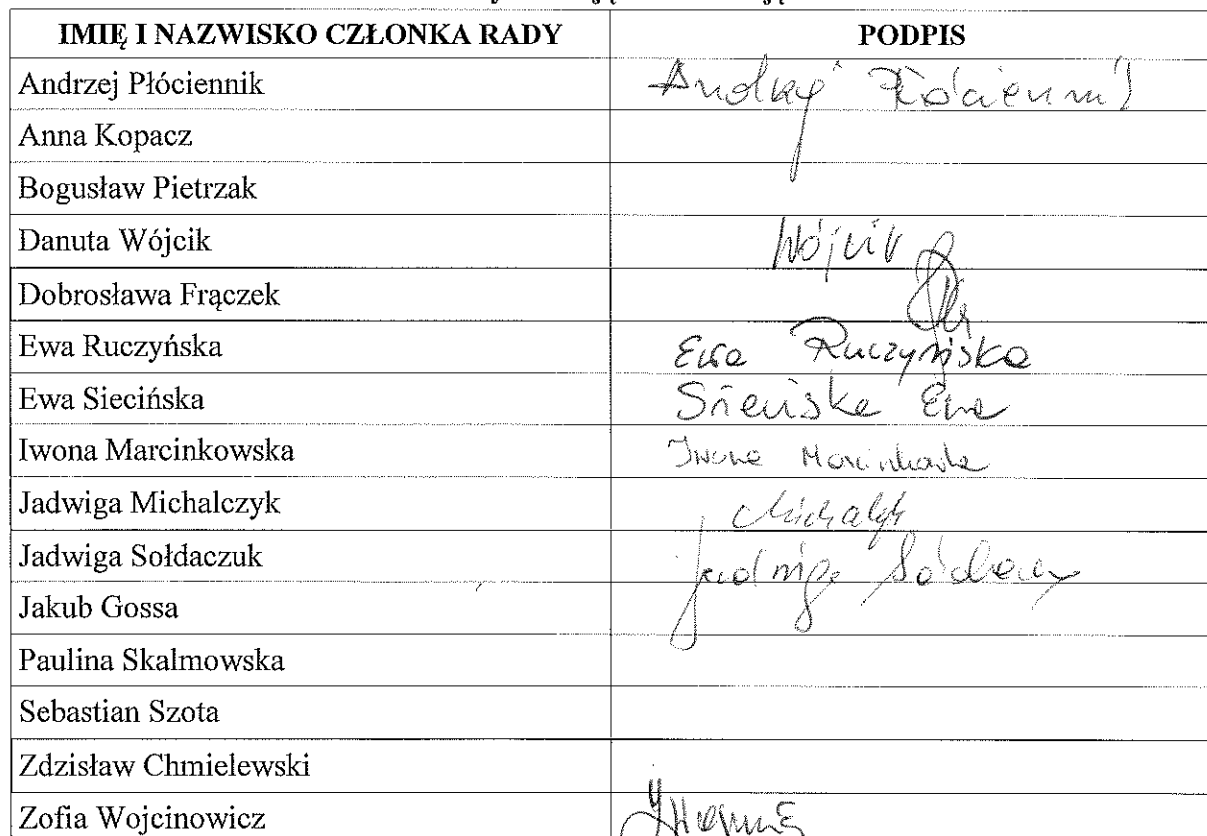 IMIĘ I NAZWISKO CZŁONKA RADY PODPIS
Andrzej Płóciennik Andrzej Płóciennik
Anna Kopacz
Bogusław Pietrzak
Danuta Wójcik Wójcik
Dobrosława Frączek
Ewa Ruczyńska Ewa Ruczyńska
Ewa Siecińska Siecińska Ewa
Iwona Marcinkowska Iwona Marcinkowska
Jadwiga Michalczyk Michalczyk
Jadwiga Sołdaczuk Jadwiga
Jakub Gossa
Paulina Skalmowska
Sebastian Szota
Zdzisław Chmielewski
Zofia Wojcinowicz